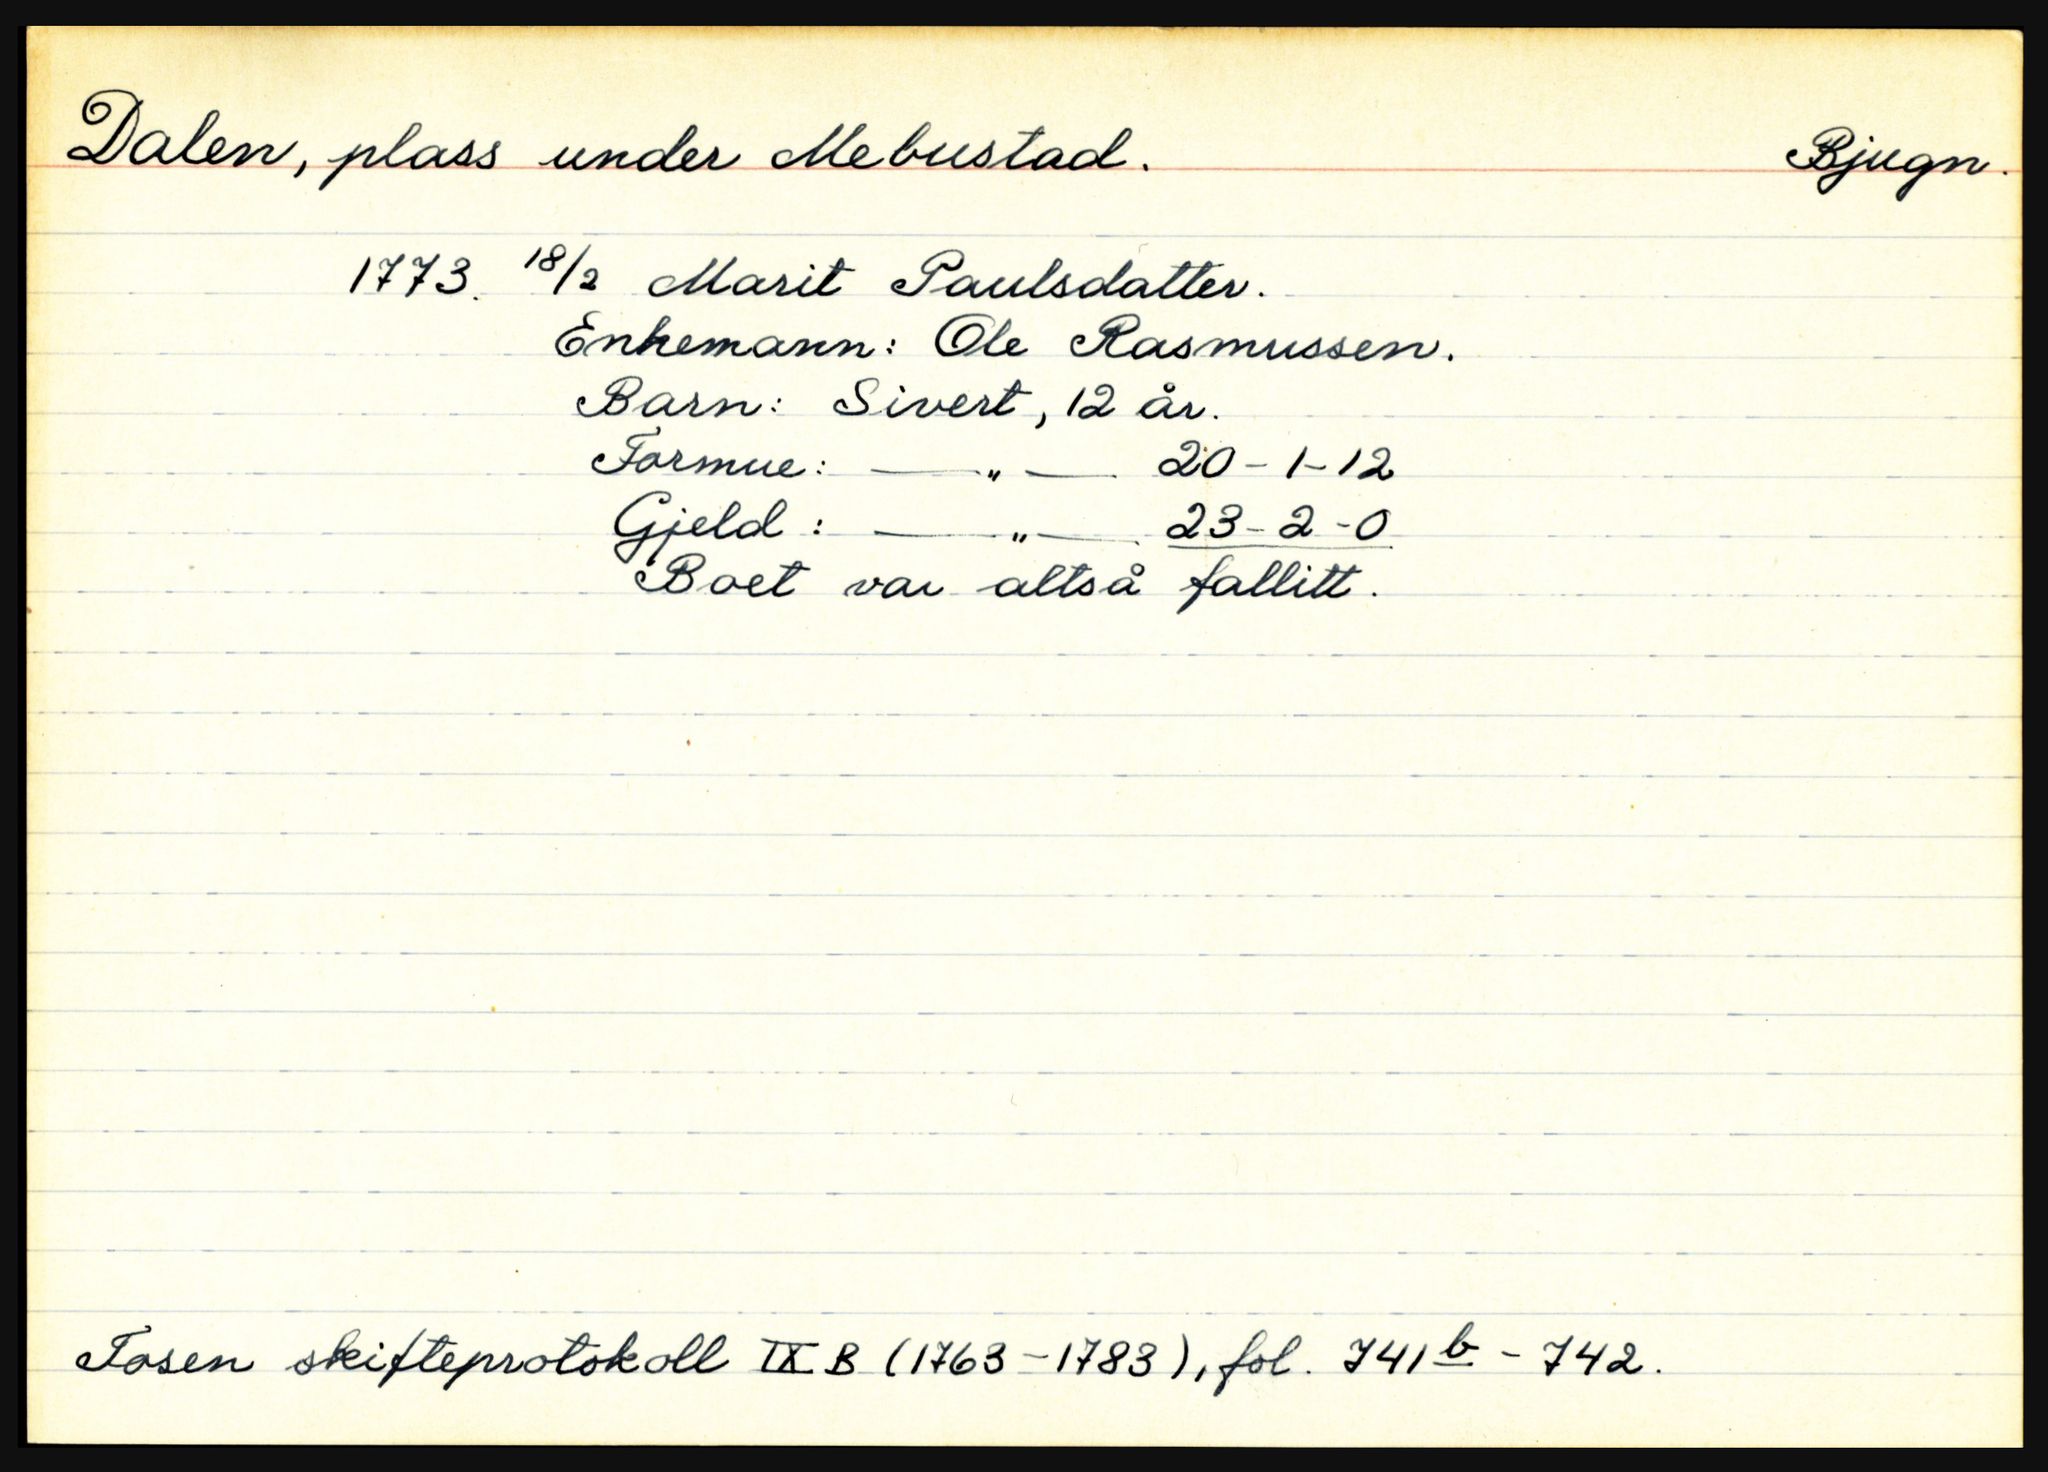 Dalen, plass under Mebustad. Bjugn.
1773. 18/2 Marit Paulsdatter.
Enkemann: Ole Rasmussen.
Barn: Sivert, 12 år.
Formue: — „ — 20-1-12
Gjeld: — „ — 23-2-0
Boet var altså fallitt.
Fosen skifteprotokoll IX B (1763-1783), fol. 741b - 742.